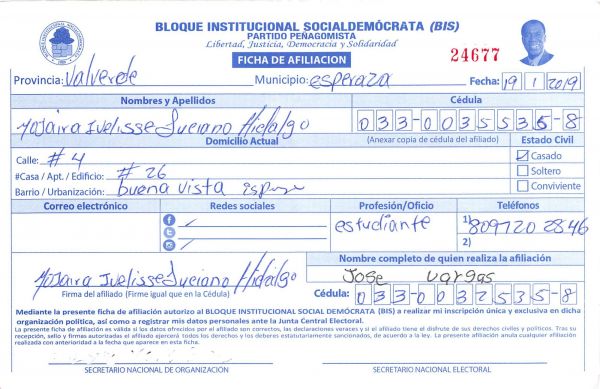 BLOQUE INSTITUCIONAL SOCIALDEMÓCRATA (BIS)
PARTIDO PEÑAGOMISTA
Libertad, Justicia, Democracia y Solidaridad
FICHA DE AFILIACION
24677
Provincia: Valverde Municipio: esperaza Fecha: 19 1 2019
Nombres y Apellidos Cédula
Yojaira Ivelisse Luciano Hidalgo 033-0035535-8
Domicilio Actual (Anexar copia de cédula del afiliado) Estado Civil
Calle: # 4 Casado
#Casa / Apt. / Edificio: # 26 Soltero
Barrio / Urbanización: buena vista Conviviente
Correo electrónico Redes sociales Profesión/Oficio Teléfonos
estudiante 1) 809 720 2846
2)
Nombre completo de quien realiza la afiliación
Yojaira Ivelisse Luciano Hidalgo Jose vargas
Firma del afiliado (Firme igual que en la Cédula) Cédula: 033-0032535-8
Mediante la presente ficha de afiliación autorizo al BLOQUE INSTITUCIONAL SOCIAL DEMÓCRATA (BIS) a realizar mi inscripción única y exclusiva en dicha
organización política, así como a registrar mis datos personales ante la Junta Central Electoral.
La presente ficha de afiliación es válida si los datos ofrecidos por el afiliado son correctos, las declaraciones veraces y si el afiliado tiene el disfrute de sus derechos civiles y políticos. Tras su
recepción, sello y firmas autorizadas el afiliado ejercerá todos los derechos y los deberes estatutariamente sancionados, de acuerdo a la ley. La presente afiliación anula cualquier afiliación
realizada con anterioridad a la fecha que aparece en esta ficha.
SECRETARIO NACIONAL DE ORGANIZACIÓN SECRETARIO NACIONAL ELECTORAL